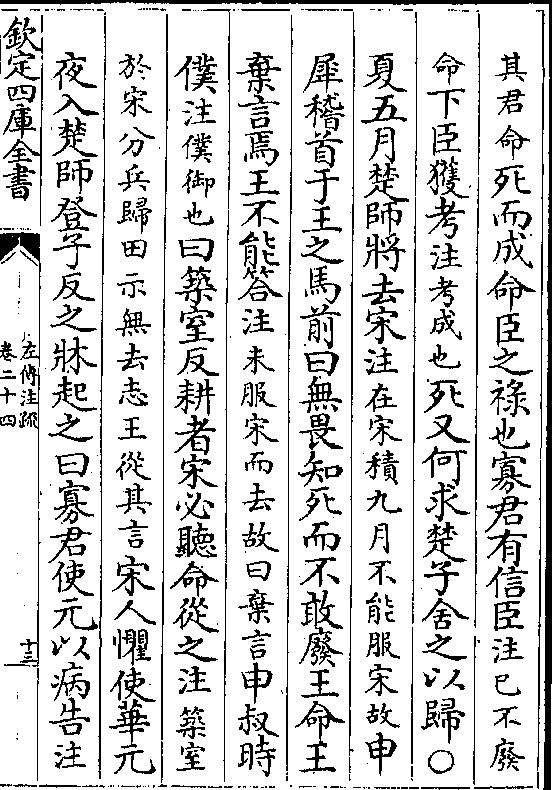 其君命死而成命臣之祿也寡君有信臣注已不廢
命下臣獲考注考成也死又何求楚子舍之以歸○
夏五月楚師將去宋注在宋積九月不能服宋故申
犀稽首于王之馬前曰無畏知死而不敢廢王命王
棄言焉王不能答注未服宋而去故曰棄言申叔時
僕注僕御也曰築室反耕者宋必聽命從之注築室
於宋分兵歸田示無去志王從其言宋人懼使華元
夜入楚師登子反之牀起之曰寡君使元以病告注
欽定四庫全書
左傳注疏
卷二十四
十三